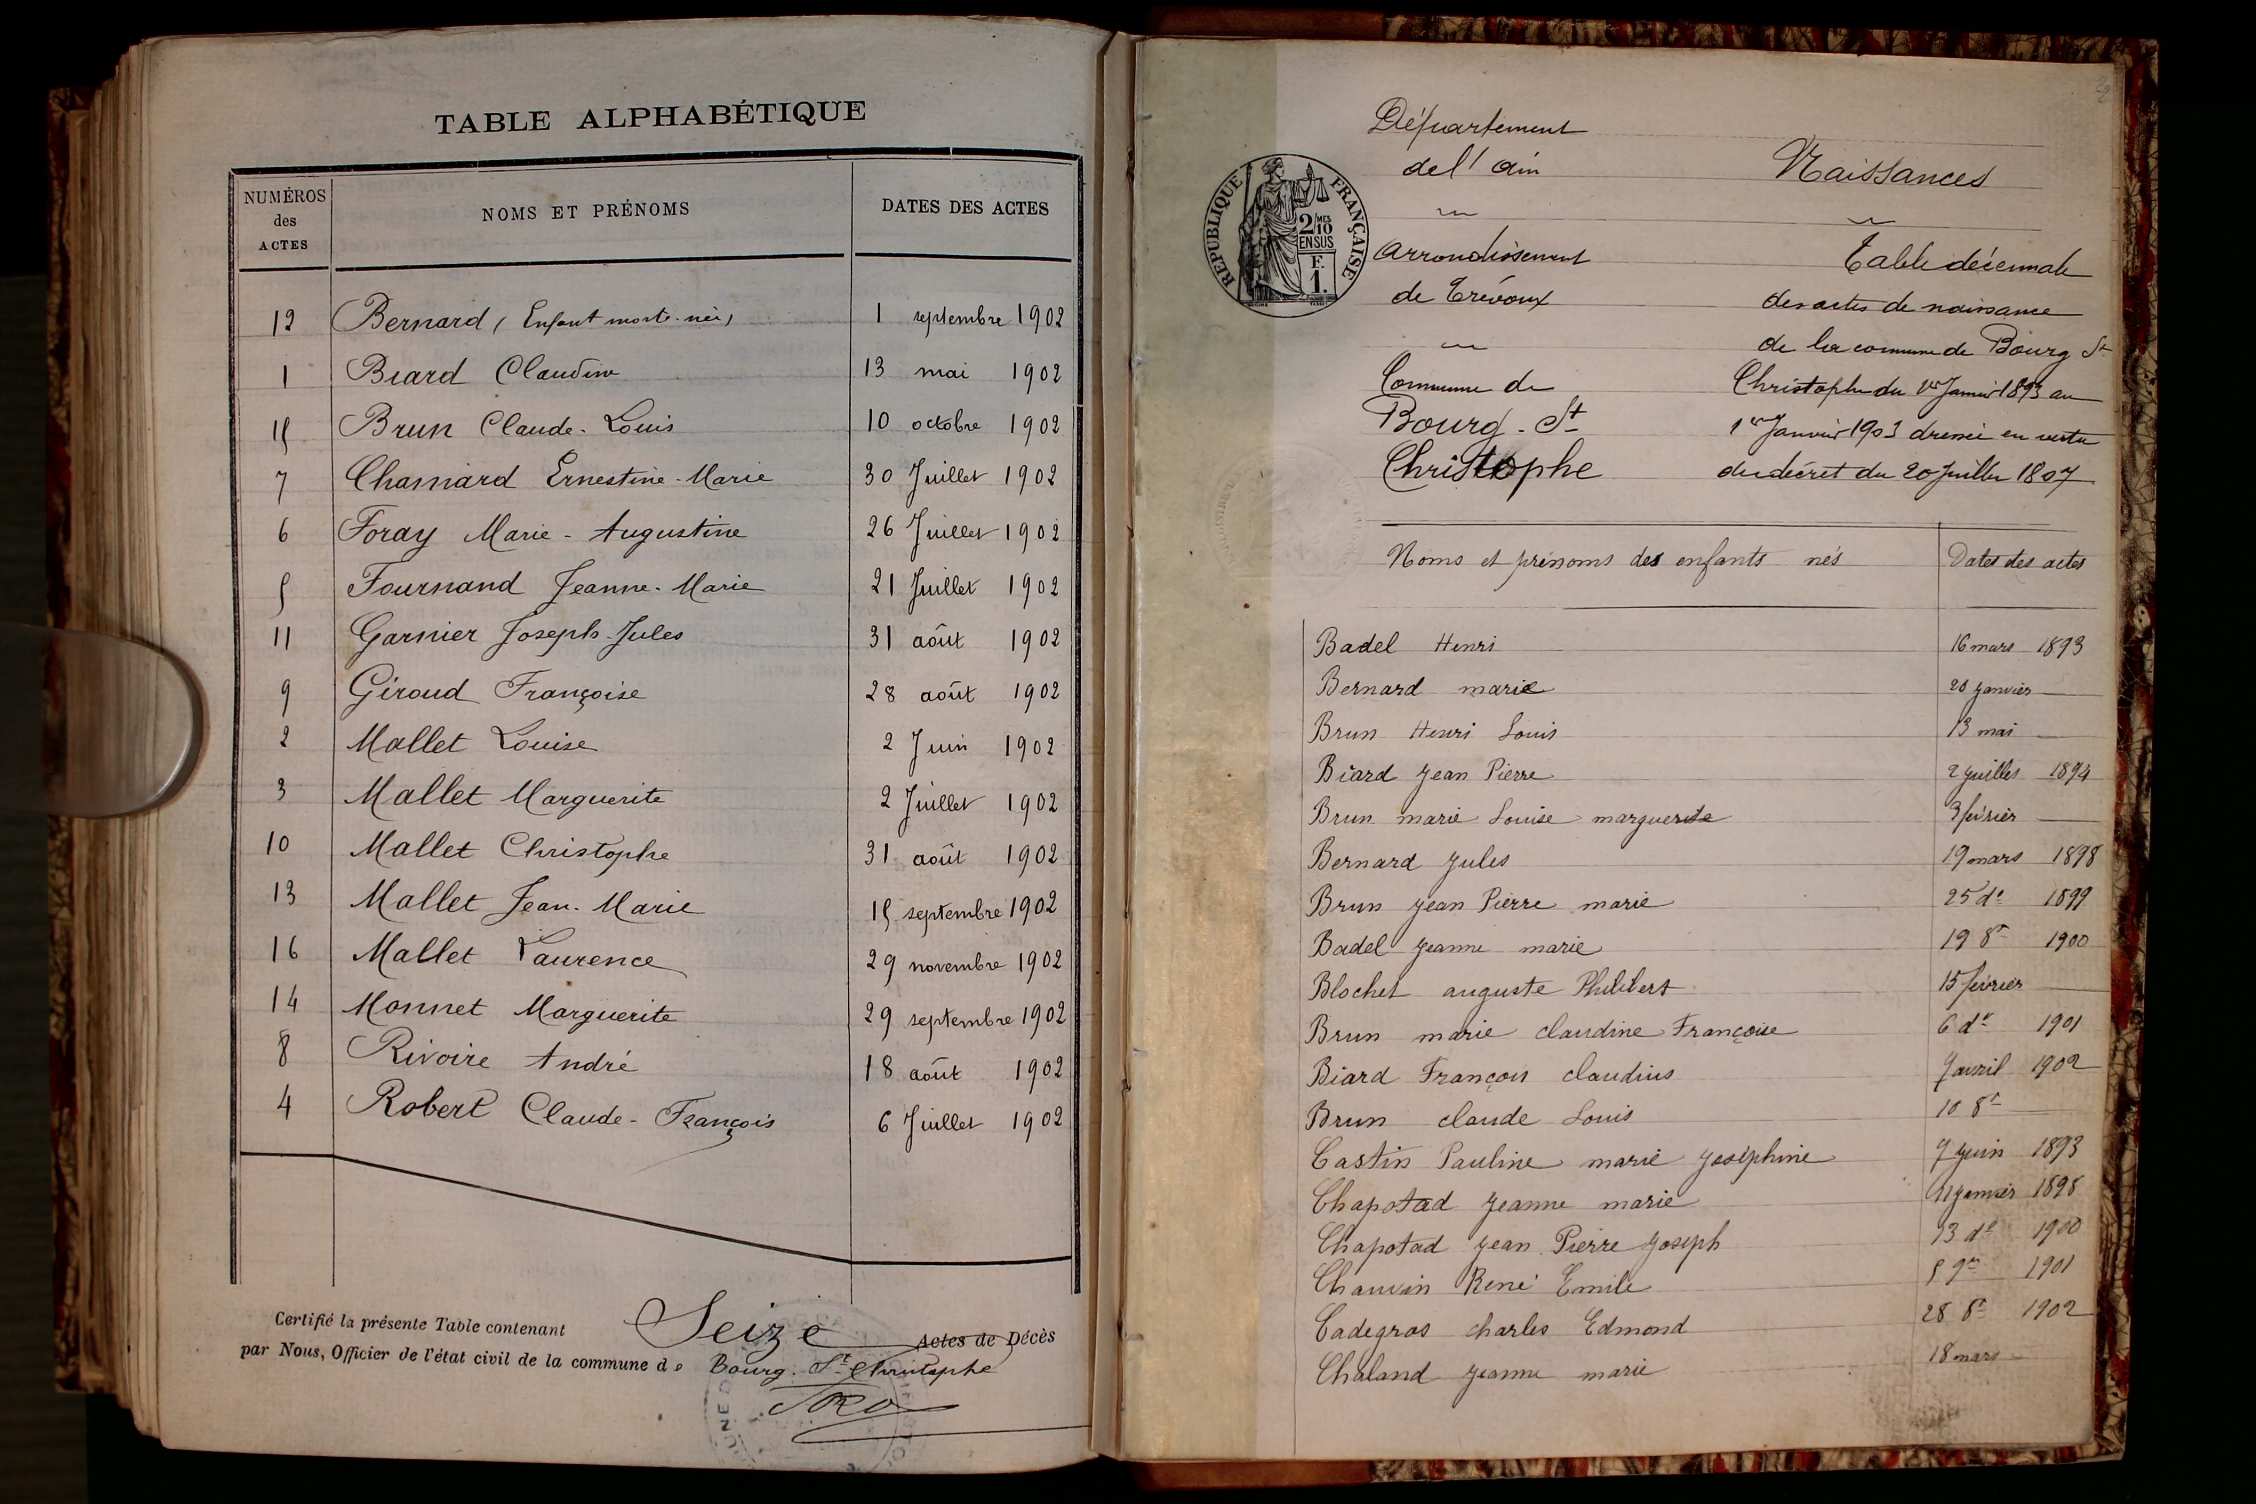 TABLE ALPHABÉTIQUE
NUMÉROS des ACTES NOMS ET PRÉNOMS DATES DES ACTES
12 Bernard (Enfant mort-né) 1 septembre 1902
1 Biard Claudine 13 mai 1902
15 Brun Claude-Louis 10 octobre 1902
7 Chanard Ernestine-Marie 30 Juillet 1902
6 Foray Marie-Augustine 26 Juillet 1902
5 Fournand Jeanne-Marie 21 Juillet 1902
11 Garnier Joseph-Jules 31 août 1902
9 Giroud Françoise 28 août 1902
2 Mallet Louise 2 Juin 1902
3 Mallet Marguerite 2 Juillet 1902
10 Mallet Christophe 31 août 1902
13 Mallet Jean-Marie 15 septembre 1902
16 Mallet Laurence 29 novembre 1902
14 Monnet Marguerite 29 septembre 1902
8 Rivoire André 18 août 1902
4 Robert Claude-François 6 Juillet 1902
Certifié la présente Table contenant Seize Actes de Décès
par Nous, Officier de l'état civil de la commune de Bourg-St-Christophe
RÉPUBLIQUE FRANÇAISE
2/10 MES
EN SUS
F.
1.
Département
de l'Ain
Arrondissement
de Trévoux
Commune de
Bourg-St
Christophe
Naissances
Table décennale
des actes de naissance
de la commune de Bourg St
Christophe du 1er Janvier 1893 au
1er Janvier 1903 dressée en vertu
du décret du 20 Juillet 1807
Noms et prénoms des enfants nés Dates des actes
Badel Henri 16 mars 1893
Bernard marie 20 janvier —
Brun Henri Louis 13 mai —
Biard Jean Pierre 2 juillet 1894
Brun marie Louise marguerite 3 février —
Bernard Jules 19 mars 1898
Brun Jean Pierre marie 25 do 1899
Badel Jeanne marie 19 8re 1900
Blochet auguste Philibert 15 février —
Brun marie claudine Françoise 6 do 1901
Biard François claudius 7 avril 1902
Brun claude Louis 10 8re —
Castin Pauline marie Joséphine 7 juin 1893
Chapotad Jeanne marie 11 janvier 1898
Chapotad Jean Pierre Joseph 13 do 1900
Chauvin René Emile 5 9re 1901
Cadegros charles Edmond 28 8re 1902
Chaland Jeanne marie 18 mars —